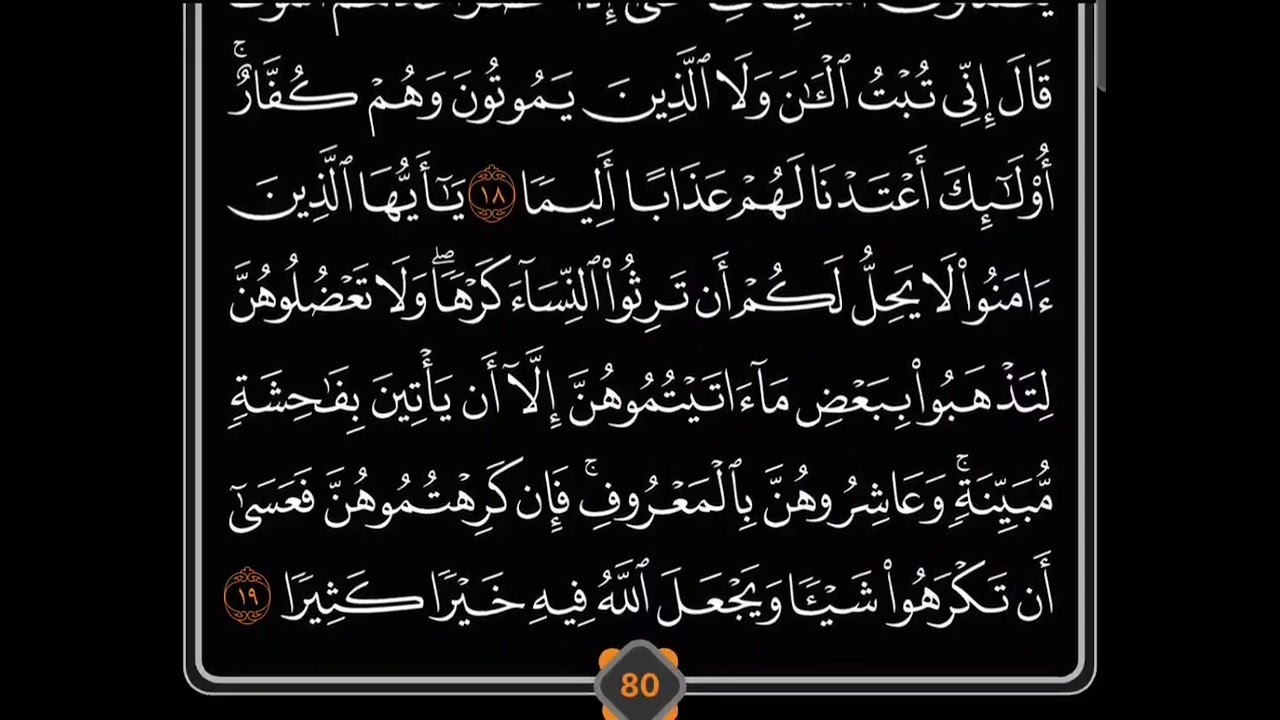 قَالَ إِنِّى تُبْتُ ٱلْـَٰٔنَ وَلَا ٱلَّذِينَ يَمُوتُونَ وَهُمْ كُفَّارٌۚ
أُو۟لَـٰٓئِكَ أَعْتَدْنَا لَهُمْ عَذَابًا أَلِيمًا ١٨ يَـٰٓأَيُّهَا ٱلَّذِينَ
ءَامَنُوا۟ لَا يَحِلُّ لَكُمْ أَن تَرِثُوا۟ ٱلنِّسَآءَ كَرْهًاۖ وَلَا تَعْضُلُوهُنَّ
لِتَذْهَبُوا۟ بِبَعْضِ مَآ ءَاتَيْتُمُوهُنَّ إِلَّآ أَن يَأْتِينَ بِفَـٰحِشَةٍ
مُّبَيِّنَةٍۚ وَعَاشِرُوهُنَّ بِٱلْمَعْرُوفِۚ فَإِن كَرِهْتُمُوهُنَّ فَعَسَىٰٓ
أَن تَكْرَهُوا۟ شَيْـًٔا وَيَجْعَلَ ٱللَّهُ فِيهِ خَيْرًا كَثِيرًا ١٩
80